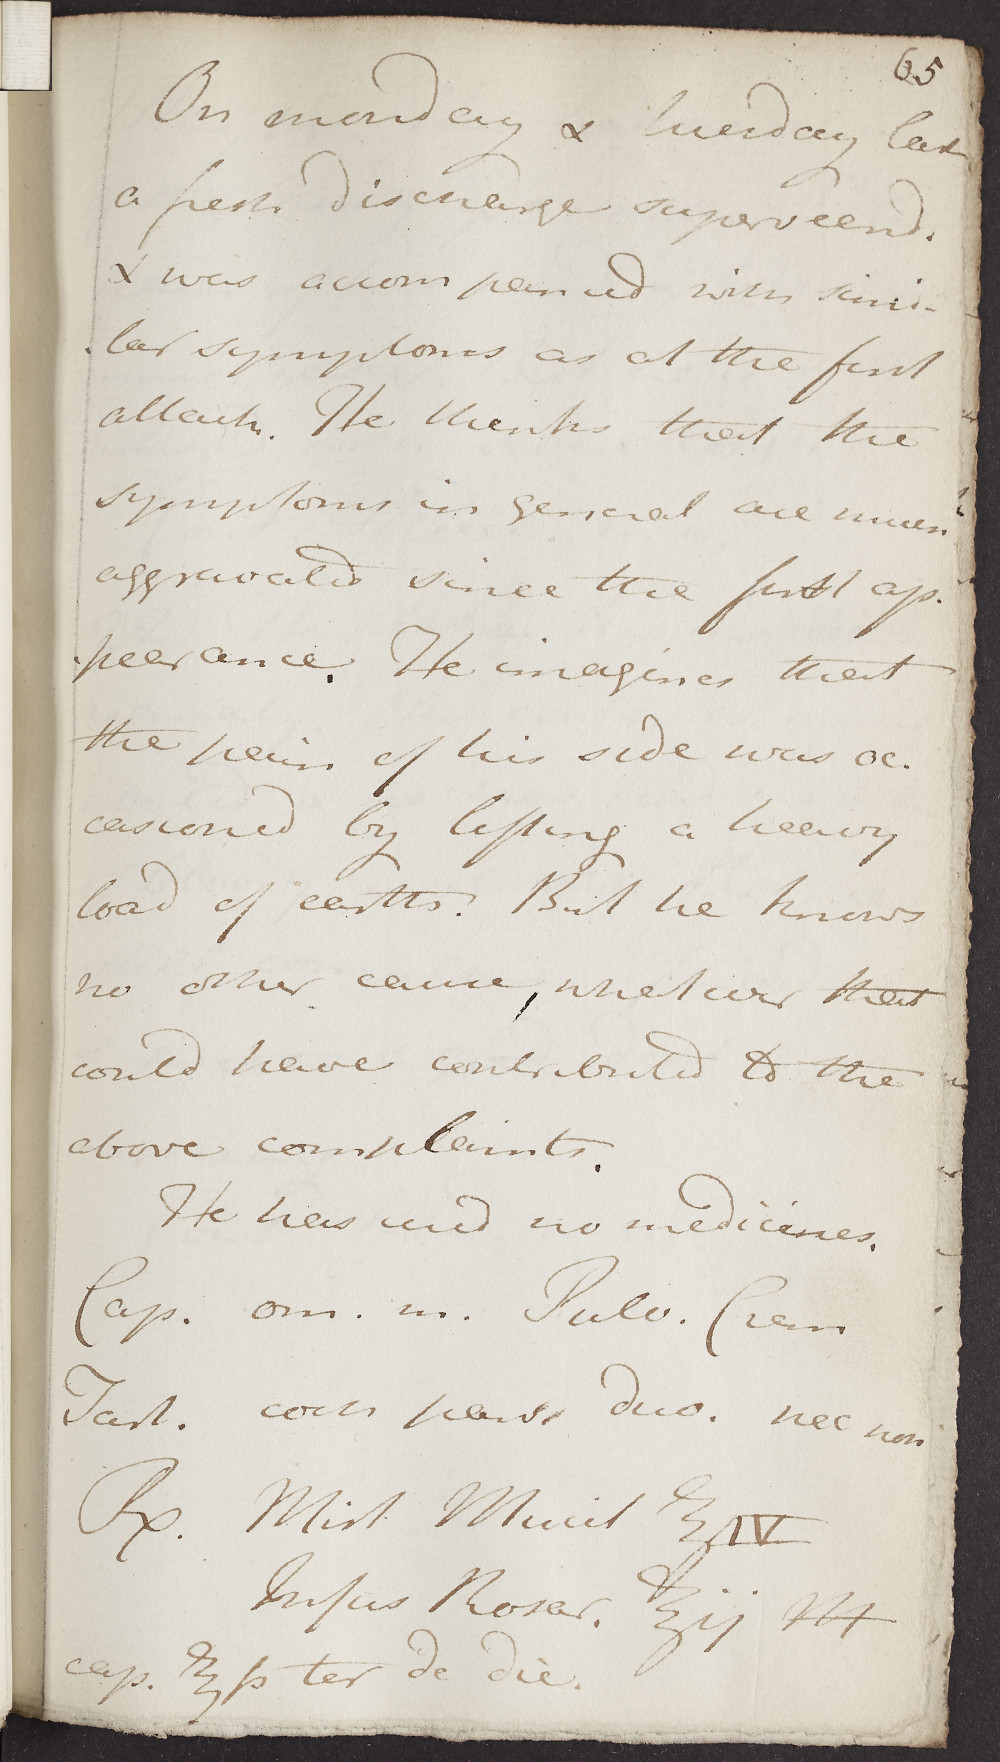 65
On monday & tuesday last
a fresh discharge superveend.
& was accompanied with simi-
lar symptoms as at the first
attack. He thinks that the
symptoms in general are much
aggravated since the first ap-
-pearance. He imagines that
the pain of his side was oc-
casioned by lifting a heavy
load of earth. But he knows
no other cause, whatever that
could have contributed to the
above complaints.
He has used no medicines.
Cap. om. m. Pulv. Crem
Tart. coch parv. duo. nec non
Rx. Mist Mucil ℥IV
Infus Rosar. ℥ij M
cap. ℥ß ter de die.